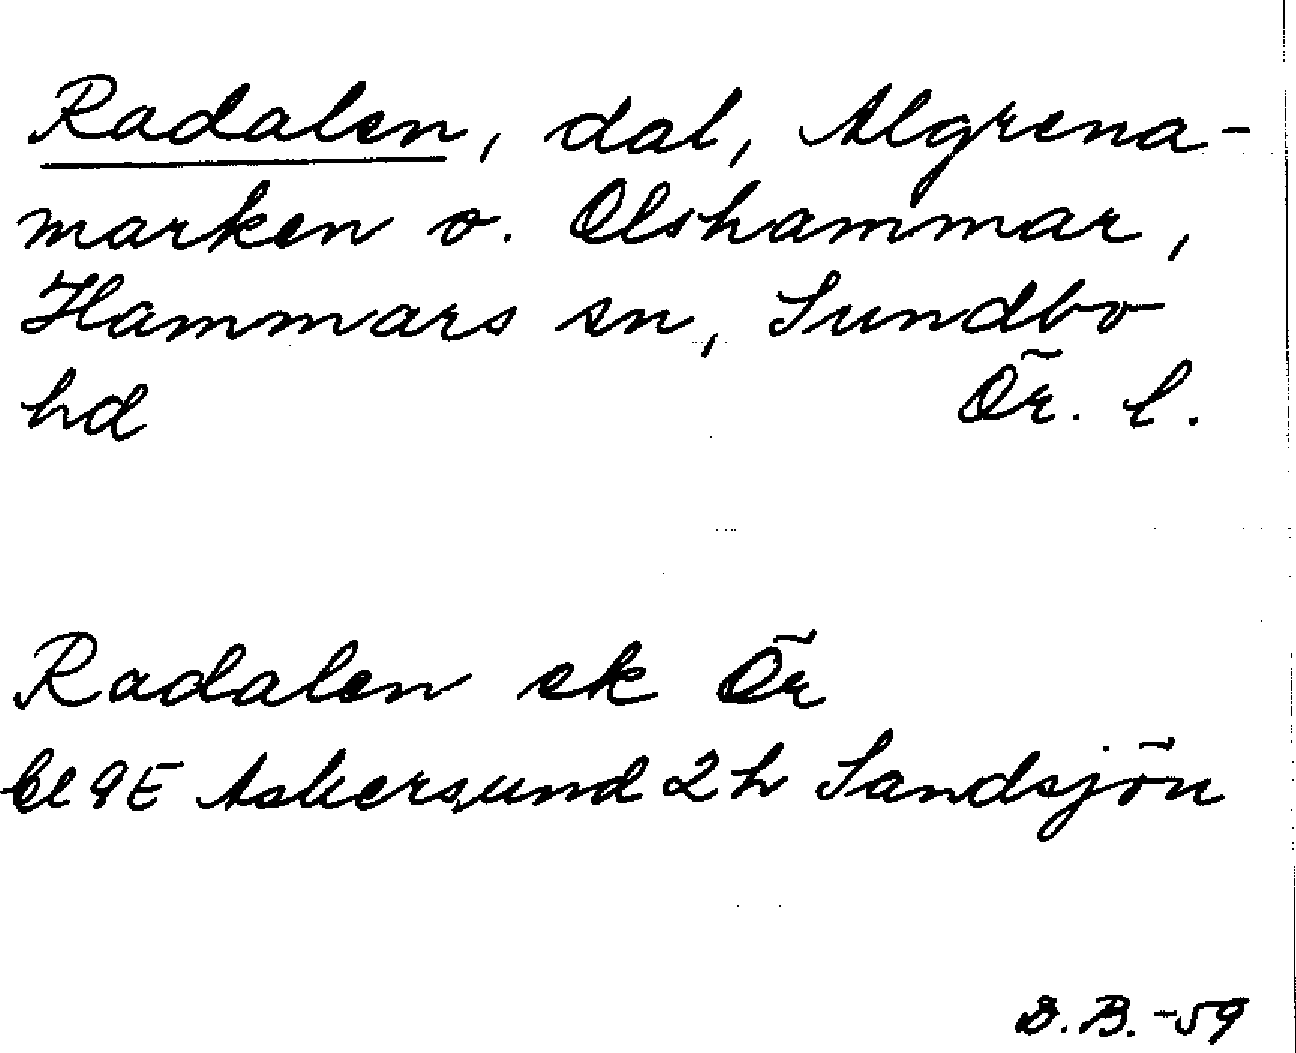 Radalen, dal, Algrena-
marken o. Olshammar,
Hammars sn, Sundbo
hd Ör. l.
Radalen ek Ör
bl 9E Askersund 2h Sandsjön
B. -59